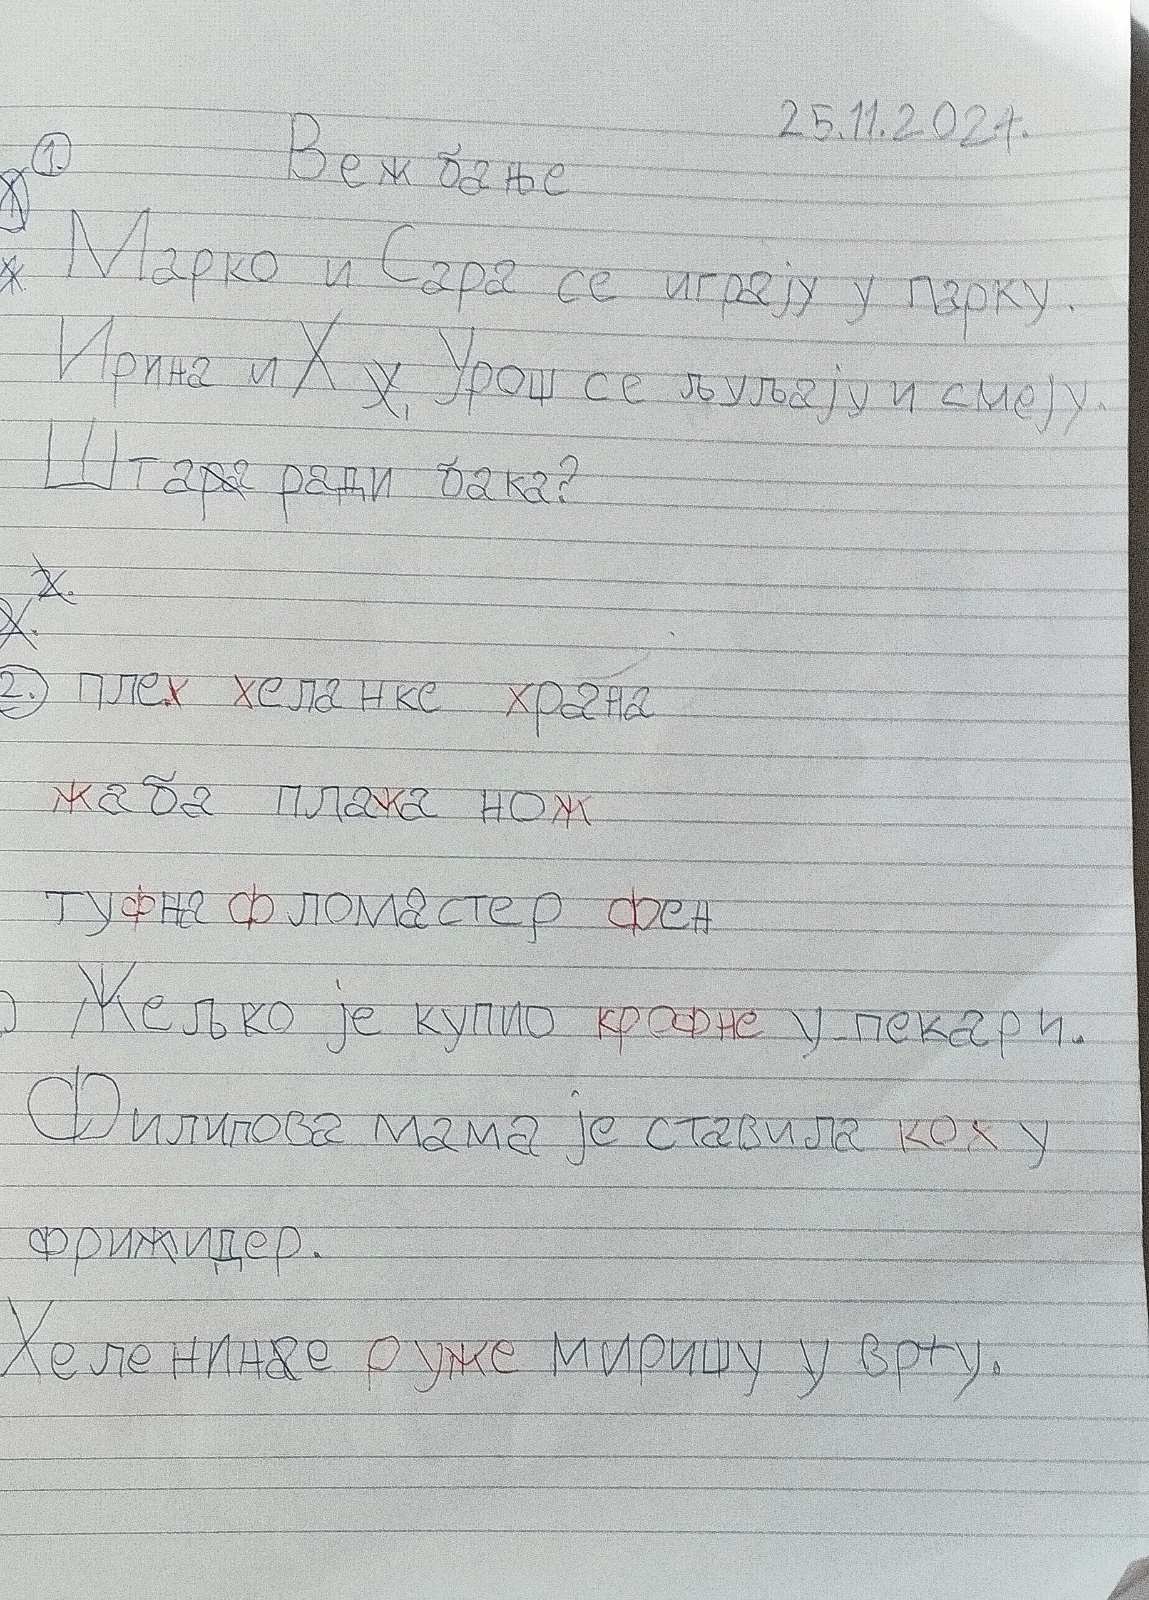 25.11.2024.
1. Вежбање
Марко и Сара се играју у парку.
Ирина и Урош се љуљају и смеју.
Шта ради бака?
2. плех хеланке храна
жаба плажа нож
туфна фломастер фен
Жељко је купио крофне у пекари.
Филипова мама је ставила кох у
фрижидер.
Хеленине руже миришу у врту.